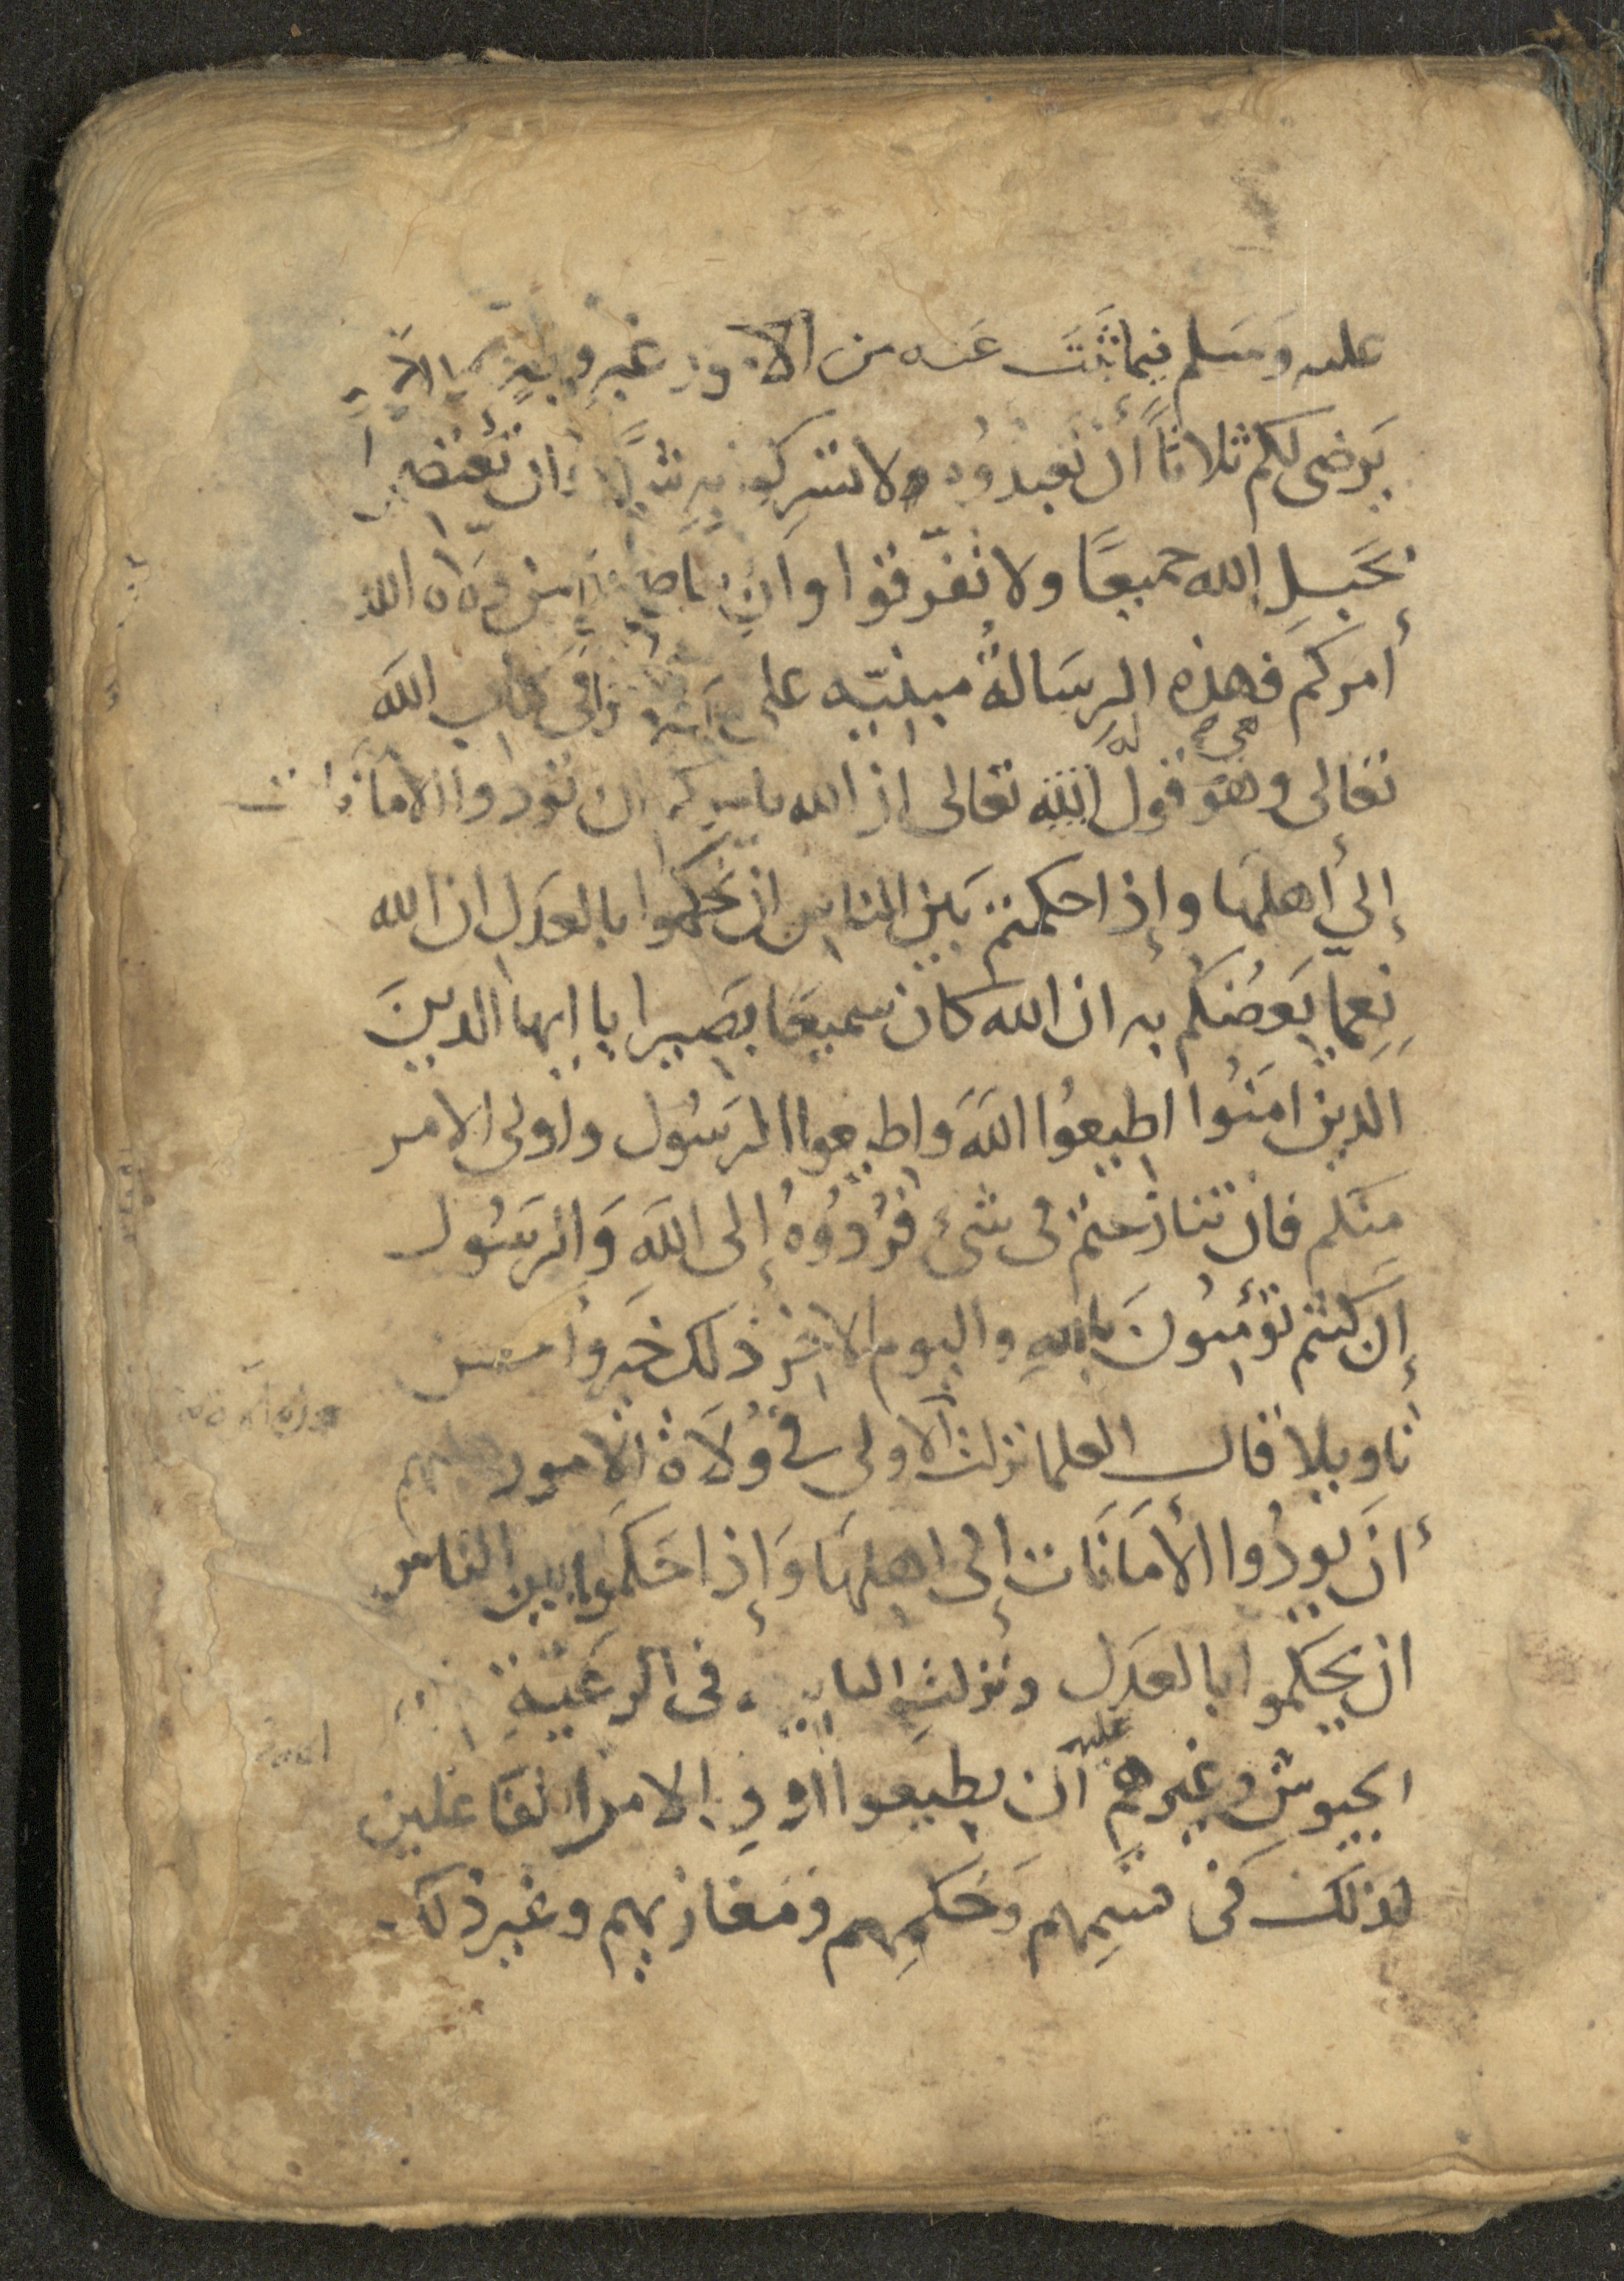 عليه وَسَلم فيما ثَبَتَ عَنه من
يَرضى لكم ثلاثًا أن تعبدُوُه ولا تشرِكوا بِهِ شيًا وان تعتصموا
بحَبلِ الله جميعًا ولا تفرّقوا وان تناصحوا من ولاه الله
أمركم فهذه الرسَالةُ مبنيّه على كتاب الله
تعالى وهو قولُ الله تعالى ان الله يامركم ان تودوا الامانات
إلى أهلها وإذا حكمتم بَين الناس ان تحكموا بالعدَل ان الله
نِعِمّا يَعِضُكم به ان الله كان سميعًا بصَيرا يا ايها الدينَ
الدين امنَوُا اطيعوُا اللهَ واطيعوا الرسَوُل واولى الامر
منكم فان تنازعتم فى شىء فرُدوُهُ إلى اللهَ وَالرسَوُل
إن كنتم تؤمنوُنَ باللهِ واليوم الاخر ذلك خير وأحسن
تاويلا قال العلما نزلت الاولى في وُلاَة الامور
أنَ يودُوا الأمَانَات إلى اهلهَا وَإذا حَكَموا بين الناس
ان يحكموا بالعدَل ونزلتِ الثانيه فى الرعَيةِ
الجيوش وغيرهم عليهم أن يطيعوا اولى الامر الفاعلين
لذلك فى قسمِهم وَحكمِهم ومَغازيهم وغير ذلك